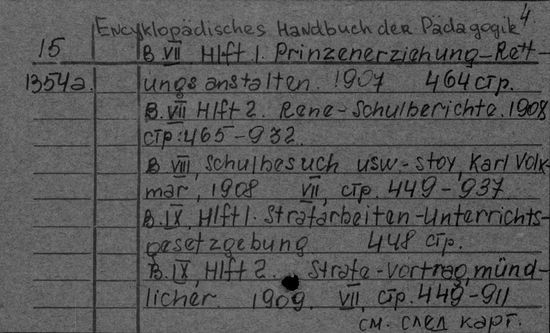 4
Encyklopädisches Handbuch der Pädagogik
15 B. VII Hlft 1. Prinzenerziehung-Rett-
1354a. ungsanstalten. 1907 464 стр.
B. VII Hlft 2. Rene-Schulberichte. 1908
стр: 465-932
B VIII, Schulbesuch usw.-Stoy, Karl Volk-
mar, 1908 VII, стр. 449-937
B. IX, Hlft 1. Strafarbeiten-Unterrichts-
gesetzgebung 448 стр.
B. IX, Hlft 2. Strafe-Vortrag, münd-
licher 1909. VII, стр. 449-911
см. след карт.